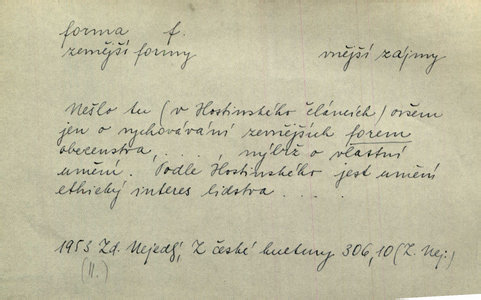 forma f.
zevnější formy vnější zájmy
Nešlo tu (v Hostinského článcích) ovšem
jen o vychovávání zevnějších forem
obecenstva, . . . nýbrž o vlastní
umění. Podle Hostinského jest umění
ethický interes lidstva . . . .
1953 Zd. Nejedlý, Z české kultury 306,10 (Z. Nej.)
(11.)